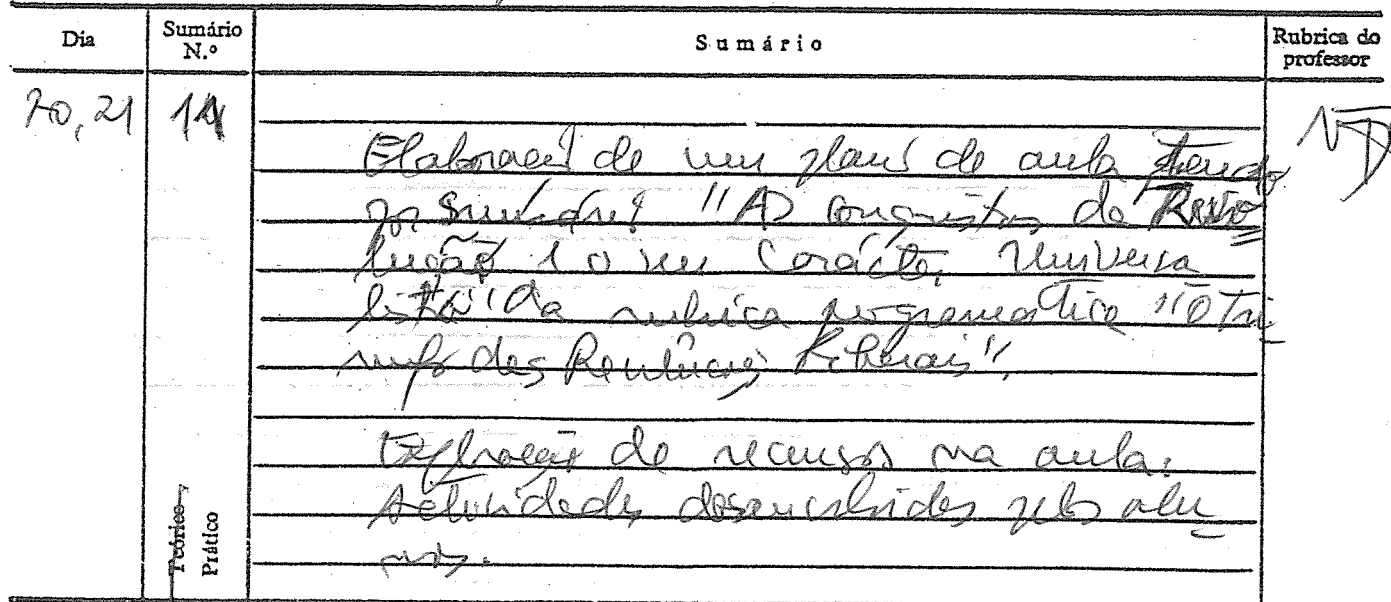 Dia
Sumário N.º
Sumário
Rubrica do professor
20, 21
14
Elaboração de um plano de aula tendo
por sumário: "As conquistas da Revo
lução e o seu Carácter Universa
lista" da rubrica programática "O Tri
unfo das Revoluções Liberais".
Exploração de recursos na aula.
Actividades desenvolvidas pelos alu
nos.
Teórico
Prático